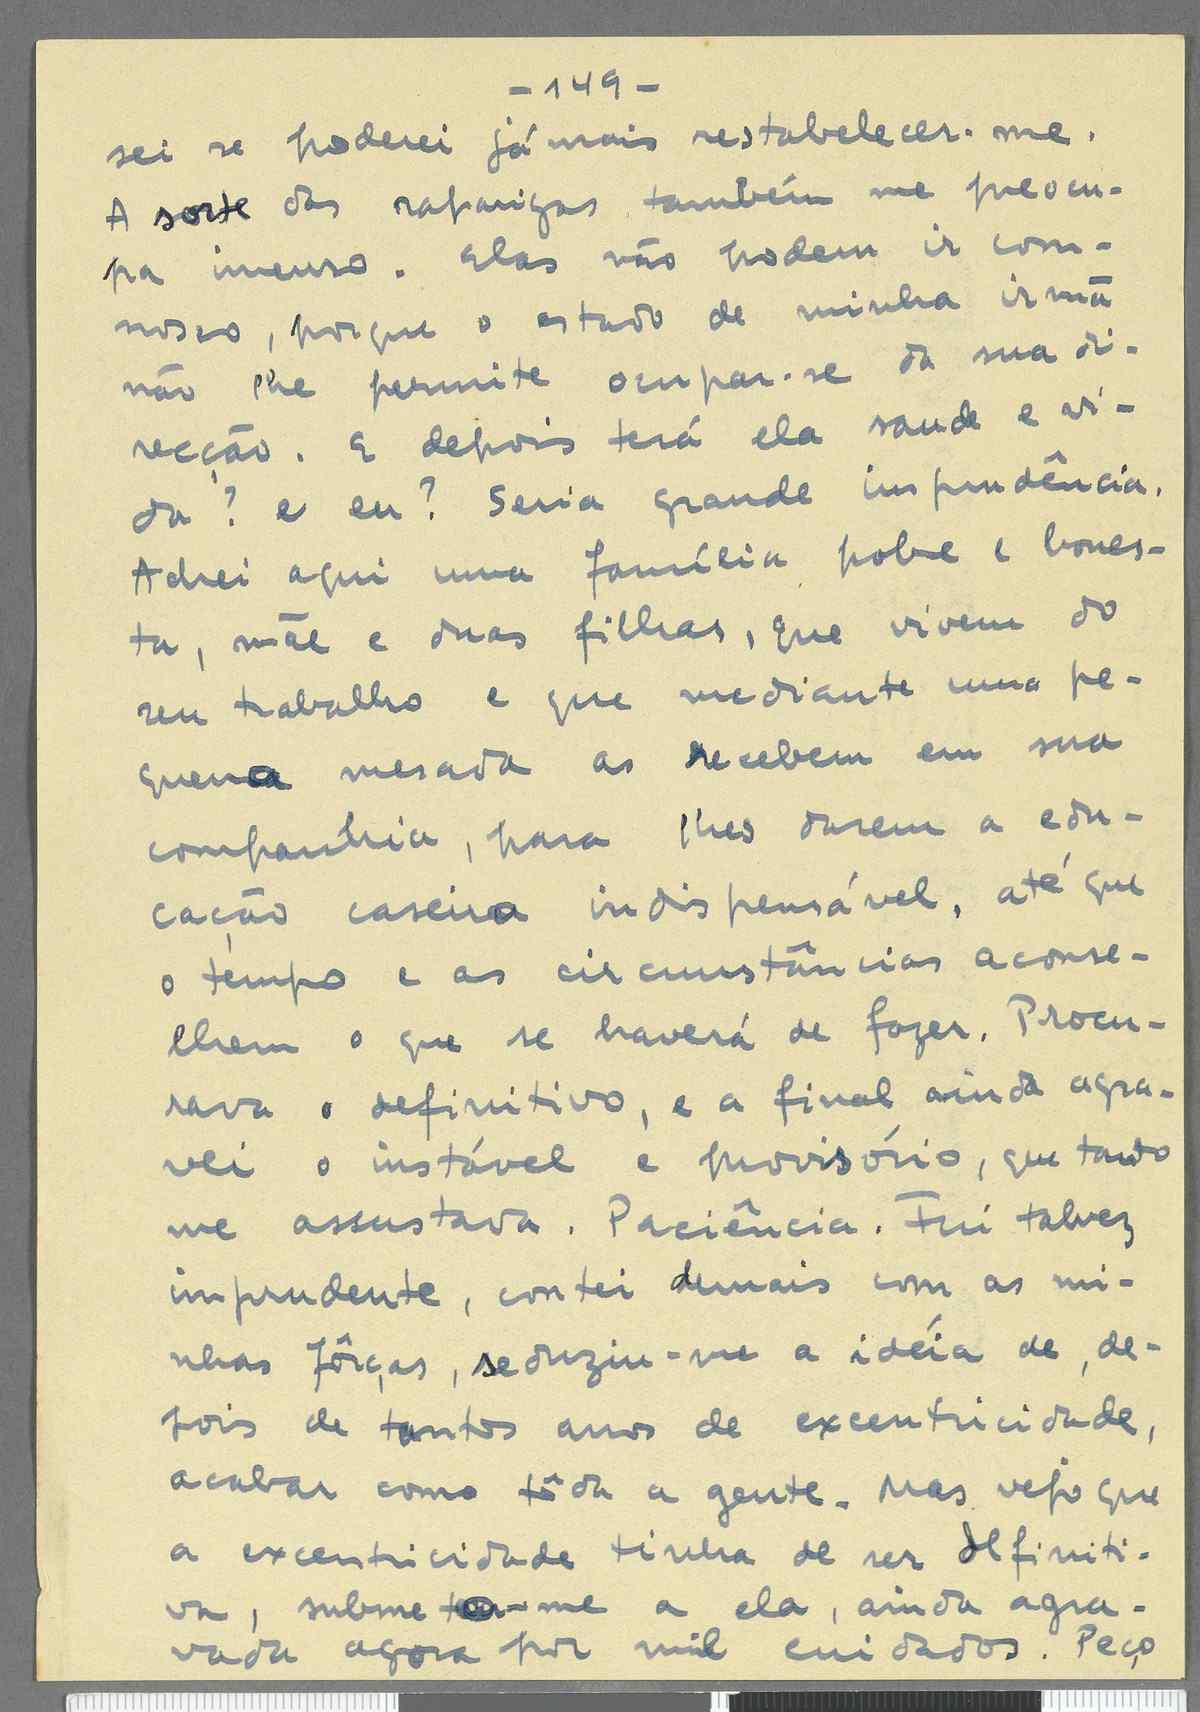 -149-
sei se poderei jámais restabelecer-me.
A sorte das raparigas também me preocu-
pa imenso. Elas não podem ir com-
nosco, porque o estado de minha irmã
não lhe permite ocupar-se da sua di-
recção. E depois terá ela saude e vi-
da? e eu? Seria grande imprudência.
Achei aqui uma família pobre e hones-
ta, mãe e duas filhas, que vivem do
seu trabalho e que mediante uma pe-
quena mesada as recebem em sua
companhia, para lhes darem a edu-
cação caseira indispensável, até que
o tempo e as circunstâncias aconse-
lhem o que se haverá de fazer. Procu-
rava o definitivo, e a final ainda agra-
vei o instável e provisório, que tanto
me assustava. Paciência. Fui talvez
imprudente, contei demais com as mi-
nhas fôrças, seduziu-me a idéia de, de-
pois de tantos anos de excentricidade,
acabar como tôda a gente. Mas vejo que
a excentricidade tinha de ser definiti-
va, submeto-me a ela, ainda agra-
vada agora por mil cuidados. Peço